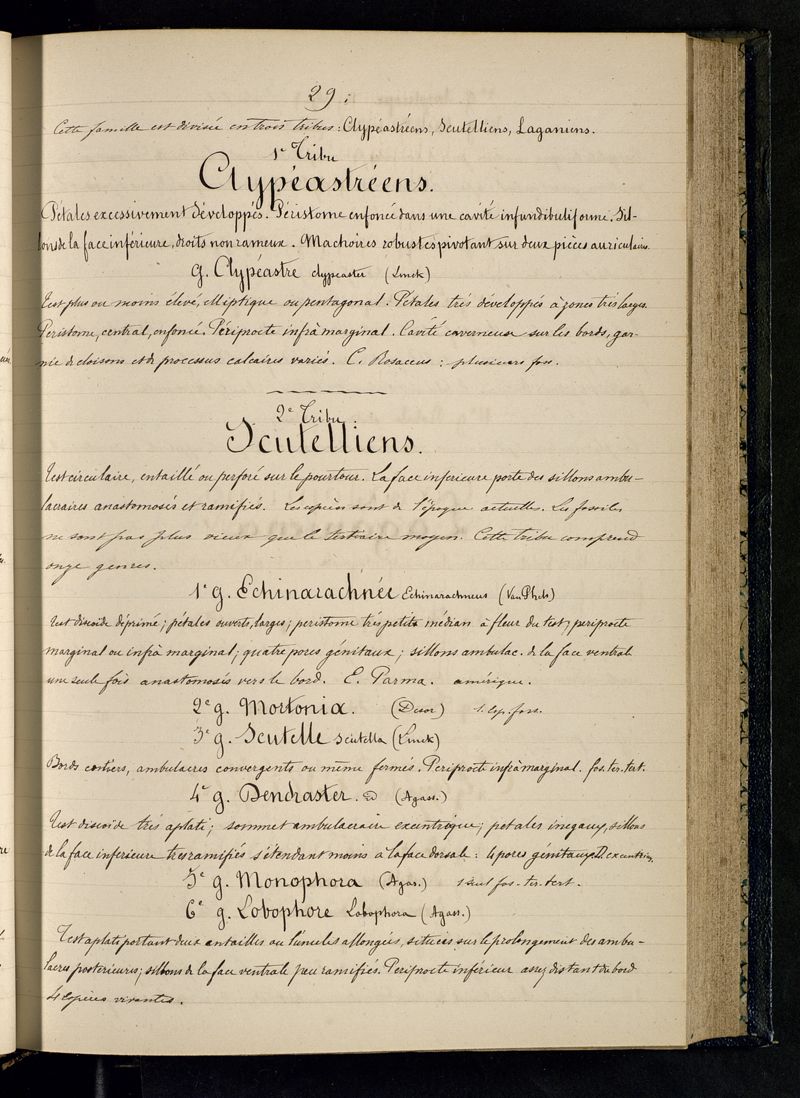 29.
Cette famille est divisée en trois tribus: Clypéastréens, Scutelliens, Laganiens.
1e Tribu
Clypéastréens.
Pétales excessivement développés. Péristome enfoncé dans une cavité infundibuliforme. Sil-
lons de la face inférieure, droits non rameux. Machoires robustes pivotant sur deux pièces auriculaires.
G. Clypéastre clypeaster (Lmck)
Test plus ou moins élevé, elliptique ou pentagonal. Pétales très développés à zones très larges.
Peristome, central, enfoncé. Périprocte infrà marginal. Cavité caverneuse sur les bords, gar-
nie de cloisons et de processus calcaires variés. C. Rosaceus: plusieurs foss.
2e Tribu.
Scutelliens.
Test circulaire, entaillé ou perforé sur le pourtour. La face inferieure porte des sillons ambu-
lacraires anastomosés et ramifiés. Les espèces sont de l'époque actuelle. Les fossiles
ne sont pas plus vieux que le tertiaire moyen. Cette tribu comprend
onze genres.
1e g. Echinarachnée Echinarachneus (Van Phels)
Test discoïde déprimé; pétales ouverts, larges; peristome très petits médian à fleur du test; periprocte
marginal ou infrà marginal; quatre pores génitaux; sillons ambulac. de la face ventrale
une seule fois anastomosés vers le bord. E. Parma. amérique.
2e g. Mortonia. (Desor) 1. esp. foss.
3e g. Scutelle Scutella (Lmck)
Bords entiers, ambulacres convergents ou même fermés. Periprocte infrà marginal. fos. ter. tert.
4e g. Dendraster. (Agass.)
Test discoïde très aplati; sommet ambulacraire excentrique; petales inegaux, sillons
de la face inferieure très ramifiés s'étendant moins à la face dorsale: 4 pores génitaux excentriq.
5e g. Monophora (Agas.) 1 seul fos. ter. tert.
6e g. Lobophore Lobophora (Agass.)
Test aplati portant deux entailles ou lunules allongées, situées sur le prolongement des ambu-
lacres posterieures; sillons de la face ventrale peu ramifiés. Periprocte inférieur assez distant du bord
4 espèces vivantes.